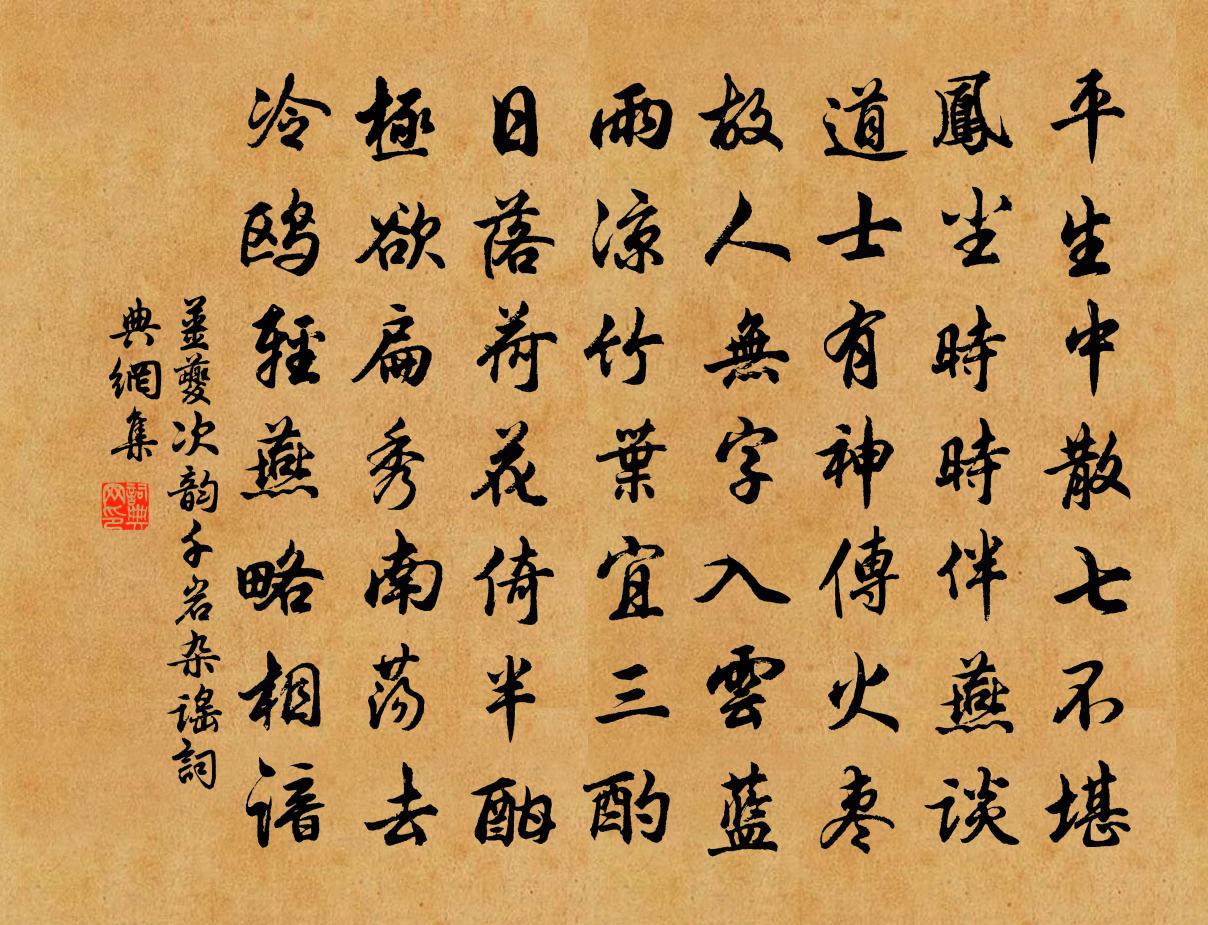 平生中散七不堪
鳳尘時時伴燕談
道士有神傳火棗
故人無字入雲藍
雨涼竹葉宜三酌
日落荷花倚半酣
極欲扁秀南荡去
冷鸥輕燕略相諳
薑夔次韵千岩杂謡詞
典網集
詞典
网印